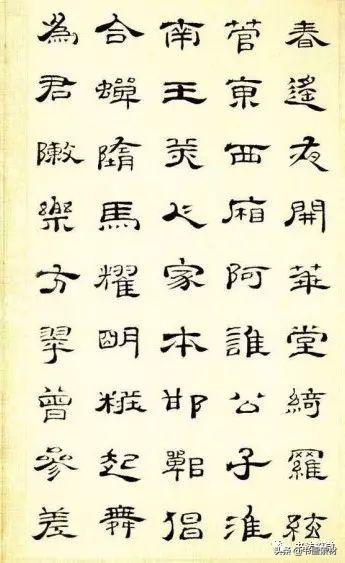 春遙夜開華堂綺羅絃
菅東西廂阿誰公子淮
南王美人家本邯鄲倡
合蟬隋馬耀明糚起舞
為君敶樂方翠曾參差
头条 @书画素材